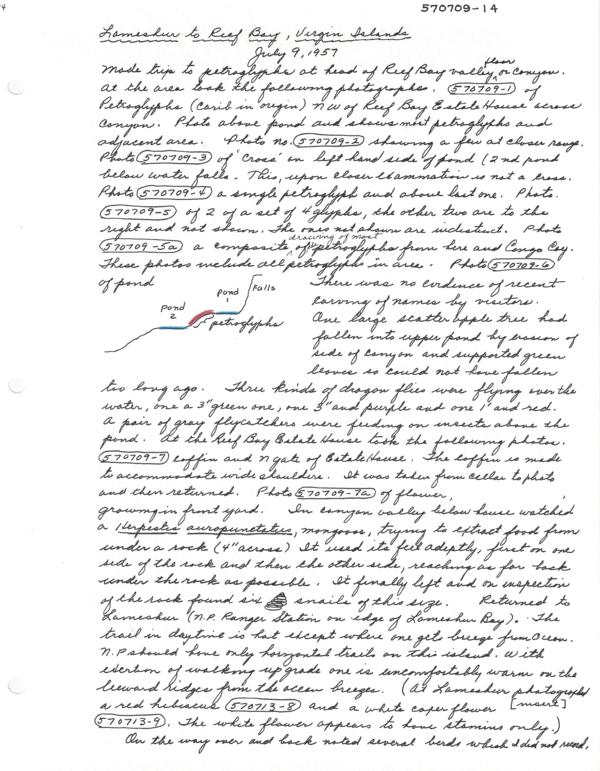 570709-14
Lameshur to Reef Bay, Virgin Islands
July 9, 1957
Made trip to petroglyphs at head of Reef Bay valley floor or canyon.
At the area took the following photographs. 570709-1 of
Petroglyphs (Carib in origin) NW of Reef Bay Estate House across
Canyon. Photo above pond and shows most petroglyphs and
adjacent area. Photo no. 570709-2 showing a few at closer range.
Photo 570709-3 of 'cross' on left hand side of pond (2nd pond
below water falls. This, upon closer examination is not a cross.
Photo 570709-4 a single petroglyph and above last one. Photo
570709-5 of 2 of a set of 4 glyphs, the other two are to the
right and not shown. The ones not shown are indistinct. Photo
570709-5a a composite drawing of most of petroglyphs from here and Congo Cay.
These photos include all petroglyphs in area. Photo 570709-6
of pond
Pond 1
Falls
Pond 2
petroglyphs
There was no evidence of recent
carving of names by visitors.
One large scatter apple tree had
fallen into upper pond by erosion of
side of canyon and supported green
leaves so could not have fallen
too long ago. Three kinds of dragon flies were flying over the
water, one a 3" green one, one 3" and purple and one 1" and red.
A pair of gray flycatchers were feeding on insects above the
pond. At the Reef Bay Estate House took the following photos.
570709-7 coffin and N gate of Estate House. The coffin is made
to accommodate wide shoulders. It was taken from cellar to photo
and then returned. Photo 570709-7a of flower,
growing in front yard. In canyon valley below house watched
a Herpestes auropunctatus, mongoose, trying to extract food from
under a rock (4" across) It used its feet adeptly, first on one
side of the rock and then the other side, reaching as far back
under the rock as possible. It finally left and on inspection
of the rock found six snails of this size. Returned to
Lameshur (N.P. Ranger Station on edge of Lameshur Bay). The
trail in daytime is hot except where one get breeze from Ocean.
N.P should have only horizontal trails on this island. With
exertion of walking up grade one is uncomfortably warm on the
leeward ridges from the ocean breezes. (At Lameshur photographed
a red hibiscus 570713-8 and a white caper flower [insert]
570713-9. The white flower appears to have stamins only.)
On the way over and back noted several birds which I did not record,